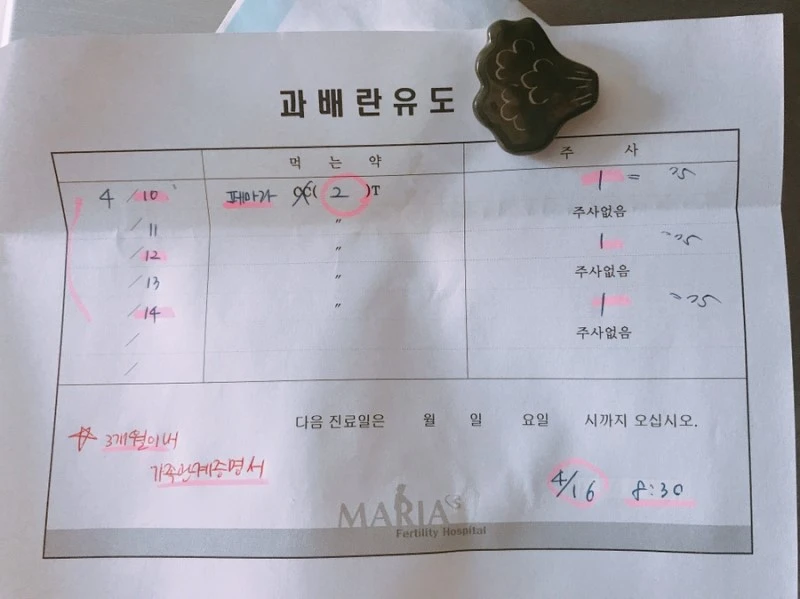 과배란유도
먹는약 주사
4/10 페마라 CC( 2 )T 1 = 75
주사없음
/11 〃
/12 〃 1 = 75
/13 〃 주사없음
/14 〃 1 = 75
주사없음
/
/
다음 진료일은 월 일 요일 시까지 오십시오.
☆ 3개월이내
가족관계증명서
4/16 8:30
MARIA
Fertility Hospital